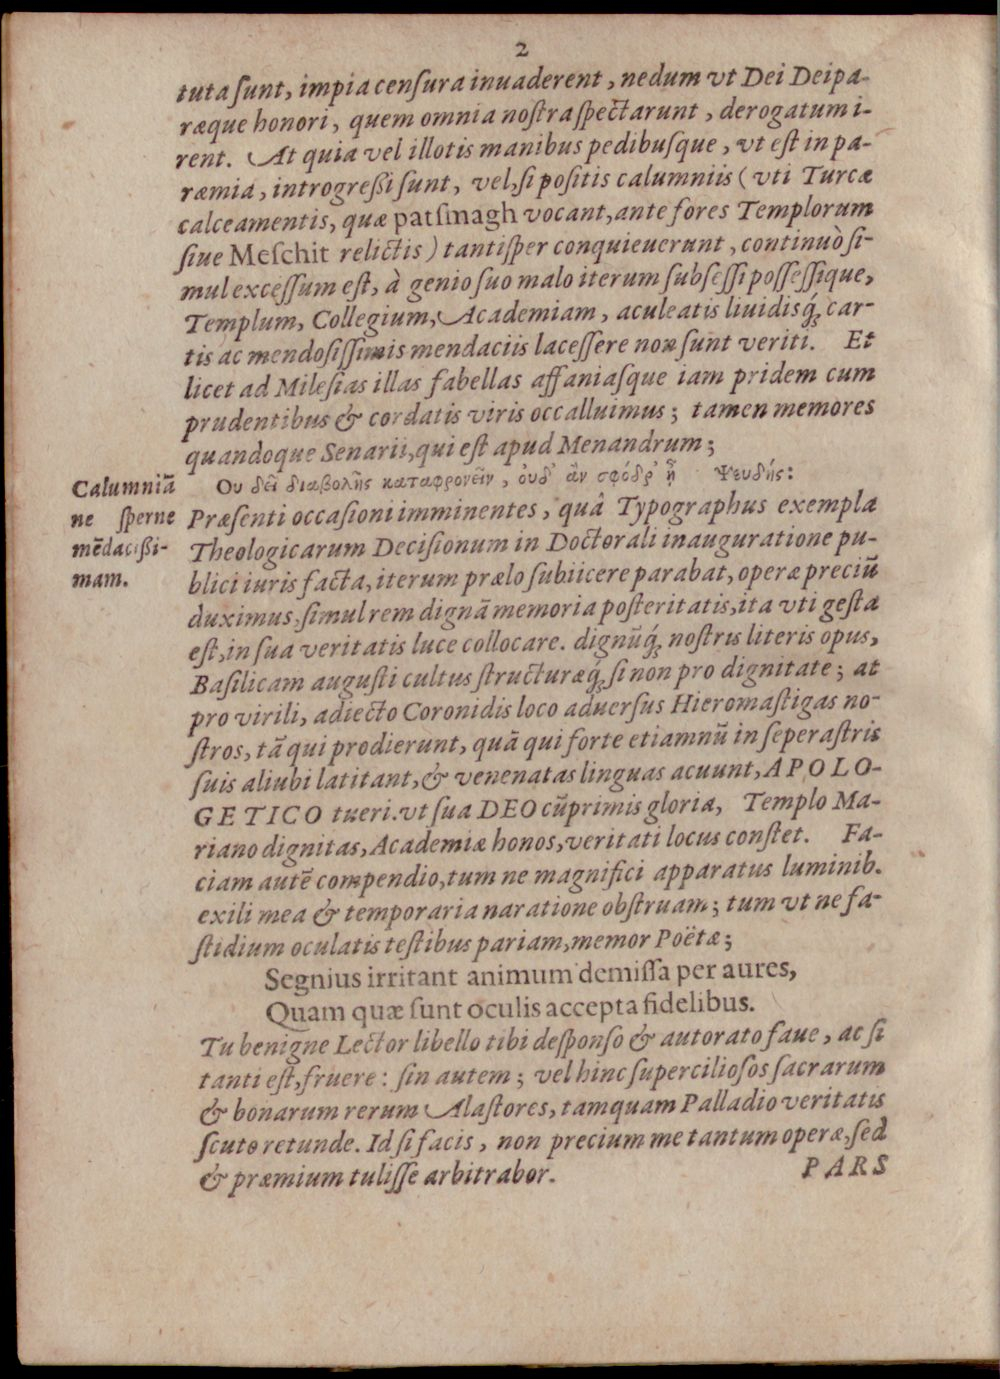 2
tuta ſunt, impia cenſura inuaderent, nedum vt Dei Deipa-
ræque honori, quem omnia noſtra ſpectarunt, derogatum i-
rent. At quia vel illotis manibus pedibuſque, vt eſt in pa-
ræmia, introgreßi ſunt, vel, ſi poſitis calumniis (vti Turcæ
calceamentis, quæ patſmagh vocant, ante fores Templorum
ſiue Meſchit relictis) tantiſper conquieuerunt, continuò ſi-
mul exceſſum eſt, à genio ſuo malo iterum ſubſeſſi poſſeſſique,
Templum, Collegium, Academiam, aculeatis liuidisq́ꝫ car-
tis ac mendoſiſſimis mendaciis laceſſere non ſunt veriti. Et
licet ad Mileſias illas fabellas affaniaſque iam pridem cum
prudentibus & cordatis viris occalluimus; tamen memores
quandoque Senarii, qui eſt apud Menandrum;
Calumniā
ne ſperne
mēdacißi-
mam.
Ου δεῖ διαβολῆς καταφρονεῖν, οὐδ' ἂν σφόδρ' ᾖ Ψευδής:
Præſenti occaſioni imminentes, quâ Typographus exempla
Theologicarum Deciſionum in Doctorali inauguratione pu-
blici iuris facta, iterum prælo ſubiicere parabat, operæ preciū
duximus, ſimul rem dignā memoria poſteritatis, ita vti geſta
eſt, in ſua veritatis luce collocare. dignūq́ꝫ noſtris literis opus,
Baſilicam auguſti cultus ſtructuræq́ꝫ ſi non pro dignitate; at
pro virili, adiecto Coronidis loco aduerſus Hieromaſtigas no-
ſtros, tā qui prodierunt, quā qui forte etiamnū in ſeperaſtris
ſuis aliubi latitant, & venenatas linguas acuunt, APOLO-
GETICO tueri. vt ſua DEO cūprimis gloria, Templo Ma-
riano dignitas, Academiæ honos, veritati locus conſtet. Fa-
ciam autē compendio, tum ne magnifici apparatus luminib.
exili mea & temporaria naratione obſtruam; tum vt ne fa-
ſtidium oculatis teſtibus pariam, memor Poëtæ;
Segnius irritant animum demiſſa per aures,
Quam quæ ſunt oculis accepta fidelibus.
Tu benigne Lector libello tibi deſponſo & autorato faue, ac ſi
tanti eſt, fruere: ſin autem; vel hinc ſupercilioſos ſacrarum
& bonarum rerum Alaſtores, tamquam Palladio veritatis
ſcuto retunde. Id ſi facis, non precium me tantum operæ, ſed
& præmium tuliſſe arbitrabor.
PARS